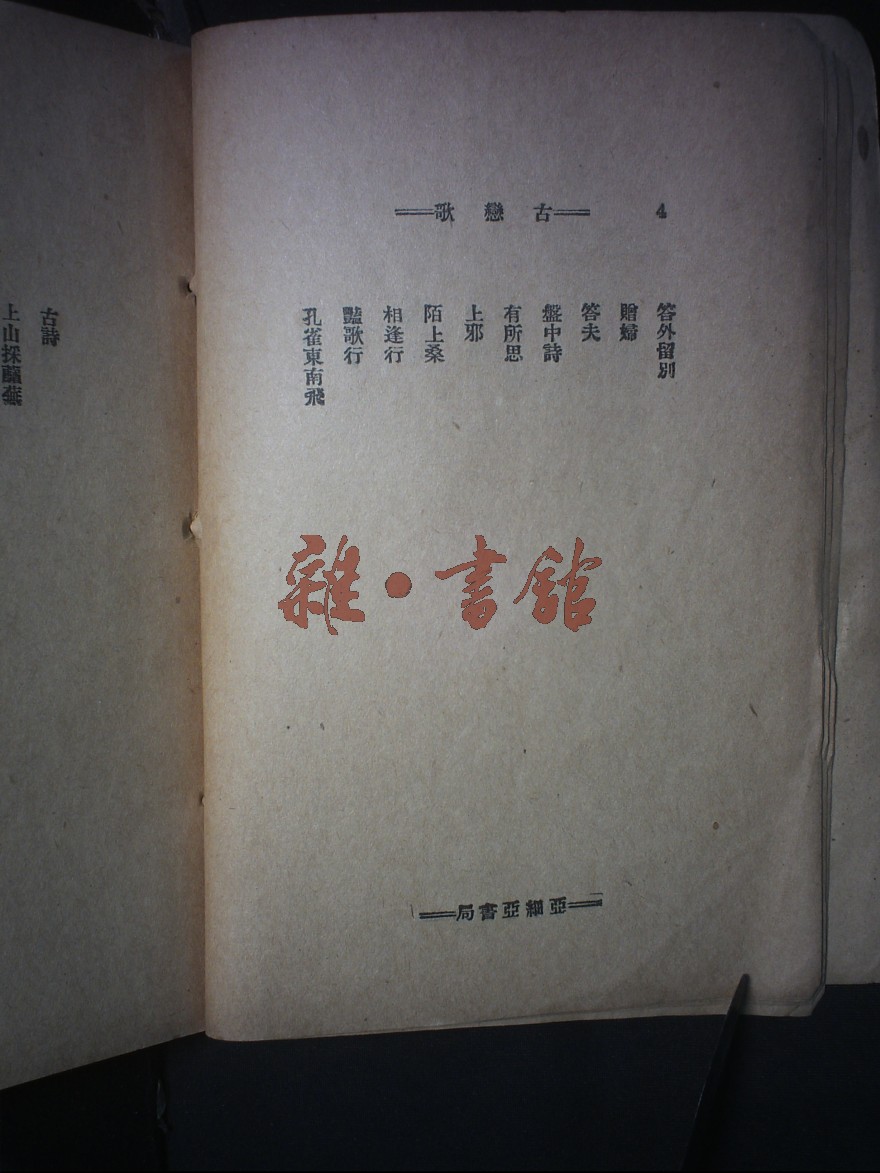 4
==古戀歌==
答外留別
贈婦
答夫
盤中詩
有所思
上邪
陌上桑
相逢行
豔歌行
孔雀東南飛
雜·書館
==亞細亞書局==
古詩
上山採蘼蕪